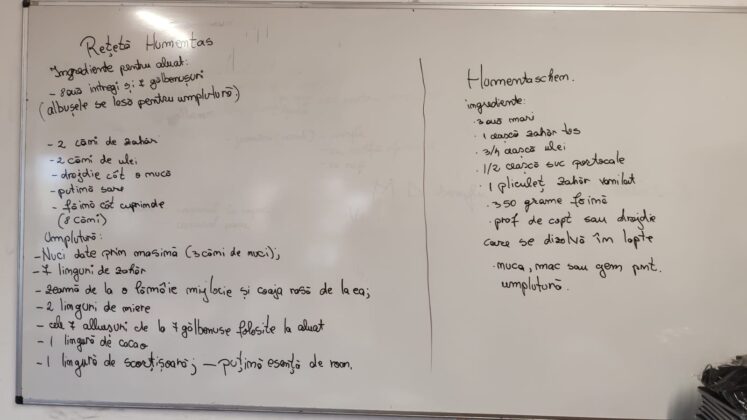 Rețetă Humentas
Ingrediente pentru aluat:
- 8 ouă intregi și 7 gălbenușuri
(albușele se lasă pentru umplutură)
- 2 căni de zahăr
- 2 căni de ulei
- drojdie cât o nucă
- puțină sare
- făină cât cuprinde
(8 căni)
Umplutură:
- Nuci date prin mașină (3 căni de nuci);
- 7 linguri de zahăr
- zeamă de la o lămâie mijlocie și coaja rasă de la ea;
- 2 linguri de miere
- cele 7 albușuri de la 7 gălbenușe folosite la aluat
- 1 lingură de cacao
- 1 lingură de scorțișoară; - puțină esență de rom.
Homentaschem.
ingrediente:
· 3 ouă mari
· 1 ceașcă zahăr tos
· 3/4 ceașcă ulei
· 1/2 ceașcă suc portocale
· 1 pliculeț zahăr vanilat
· 350 grame făină
· praf de copt sau drojdie
care se dizolvă în lapte
· nuca, mac sau gem pnt.
umplutură.